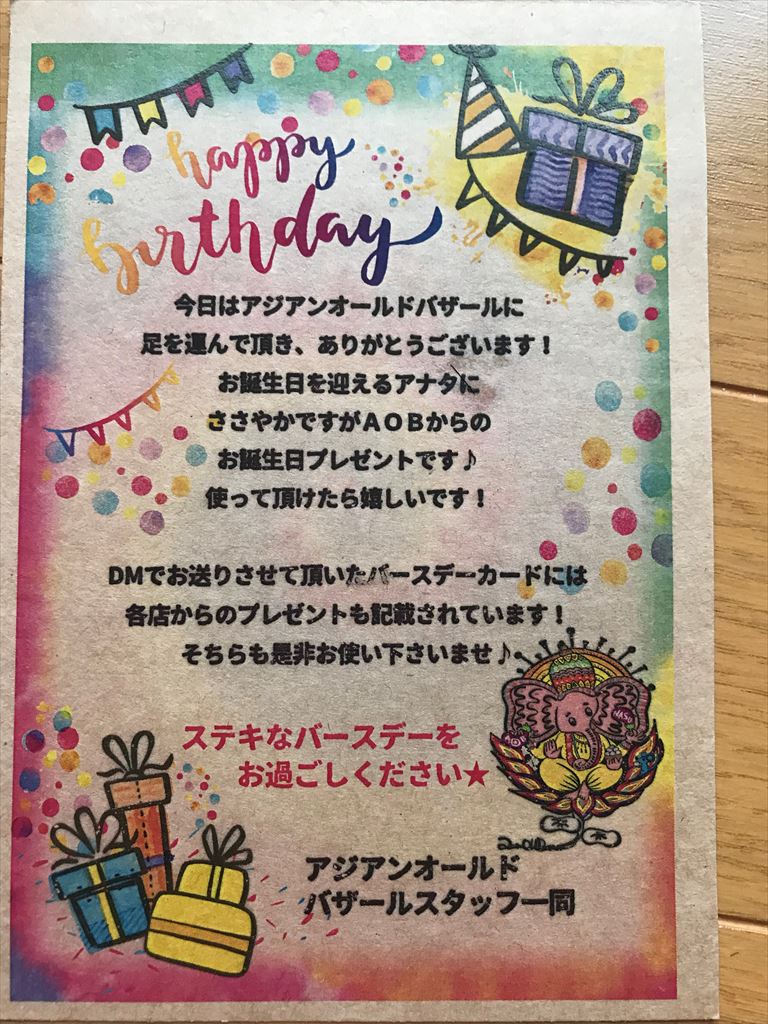 happy
birthday
今日はアジアンオールドバザールに
足を運んで頂き、ありがとうございます！
お誕生日を迎えるアナタに
ささやかですがＡＯＢからの
お誕生日プレゼントです♪
使って頂けたら嬉しいです！
DMでお送りさせて頂いたバースデーカードには
各店からのプレゼントも記載されています！
そちらも是非お使い下さいませ♪
ステキなバースデーを
お過ごしください★
アジアンオールド
バザールスタッフ一同